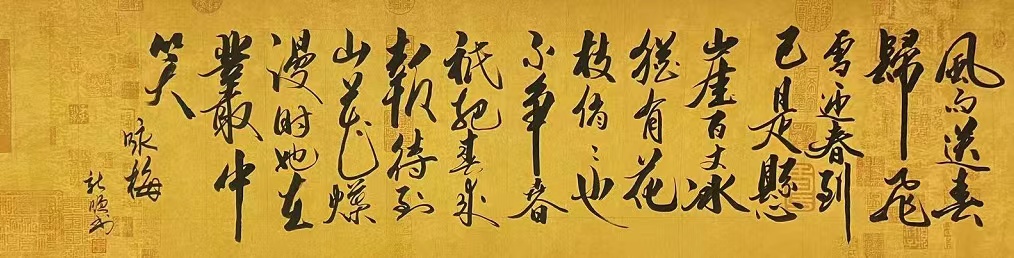 風雨送春
歸飛
雪迎春到
已是懸
崖百丈冰
猶有花
枝俏々也
不争春
祇把春來
報待到
山花爛
漫時她在
叢中
笑
咏梅